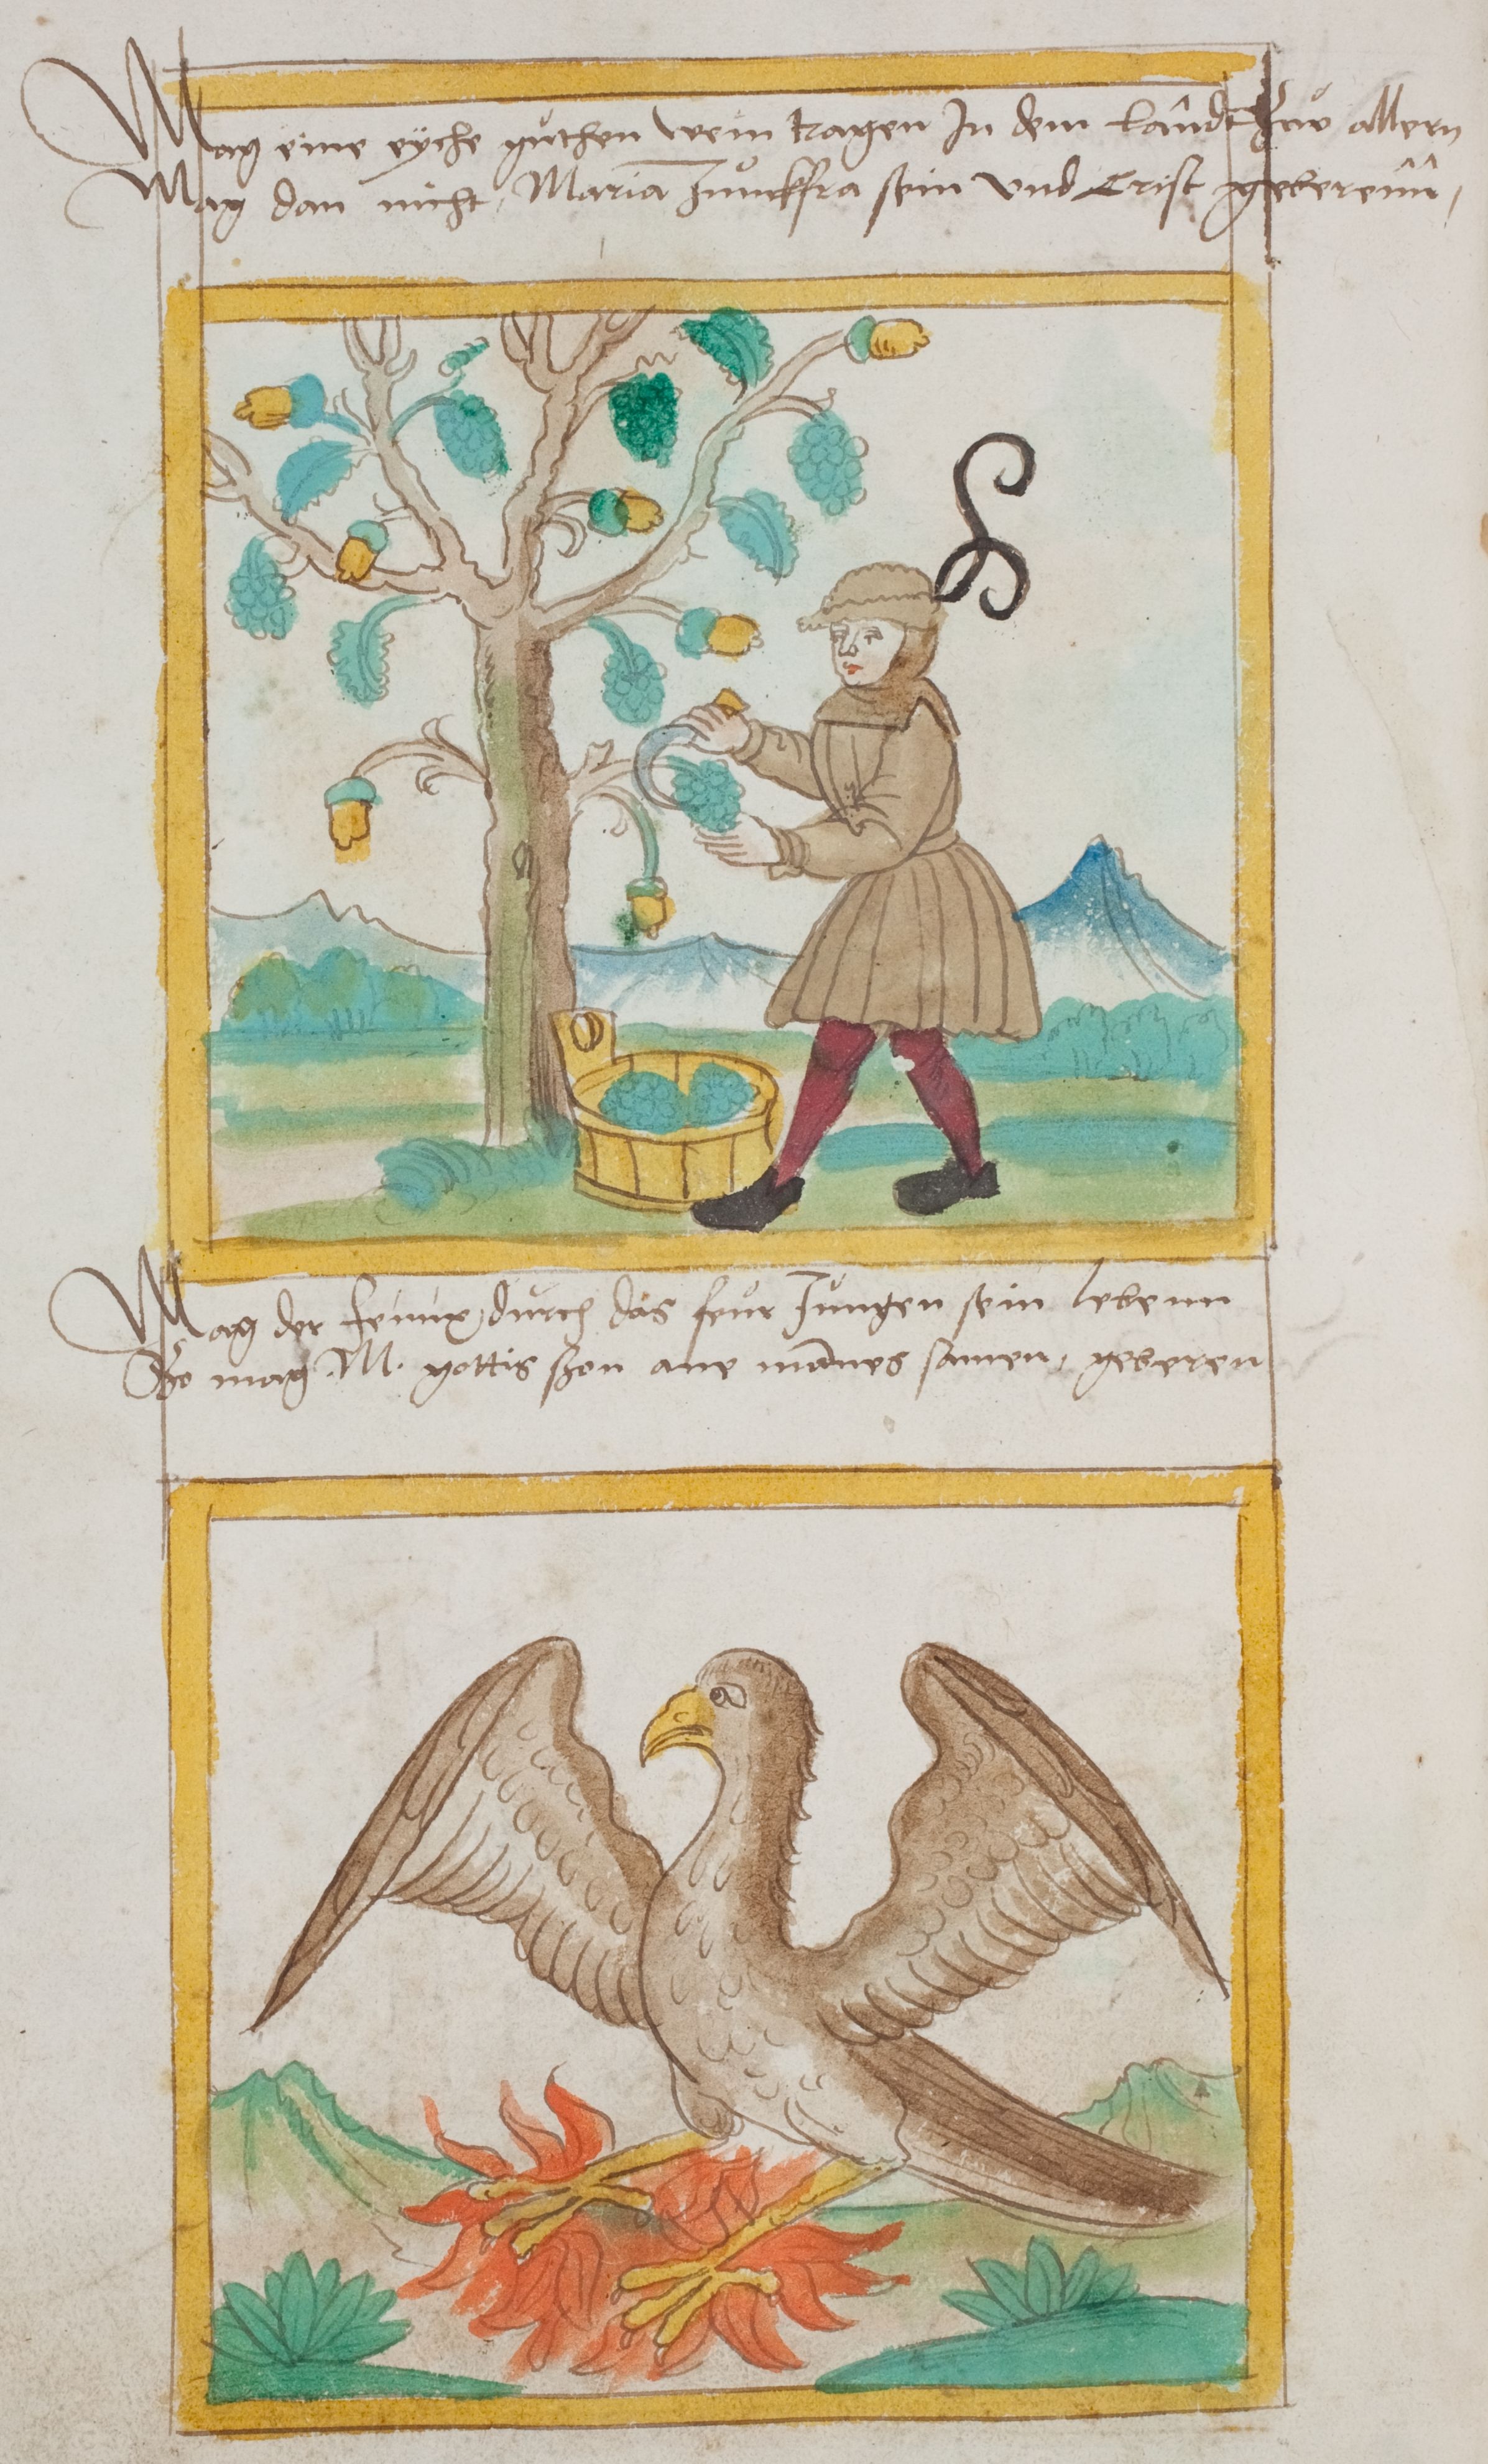 Mag eine eyche guthen wein tragen In dem landt zuo allern
Mag dan nicht Maria Junckfra sein vnd Crist geberenn,
Mag der fenix durch das feur Jungen sein lebenn
Szo mag .M. gottis szon ane mānes samen, geberen